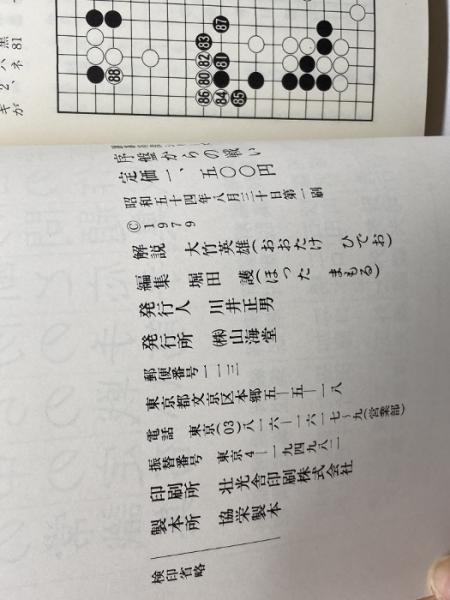 黒81
ハネ
2、
キが
87
83
82
81
80
86
84
85
88
序盤からの戦い
定価一、五〇〇円
昭和五十四年八月三十日第一刷
© 1979
解説 大竹英雄(おおたけ ひでお)
編集 堀田 護(ほった まもる)
発行人 川井正男
発行所 ㈱山海堂
郵便番号一一三
東京都文京区本郷五—五—一八
電話 東京(03)八一六—一六一七~九(営業部)
振替番号 東京4—一九四九八二
印刷所 壮光舎印刷株式会社
製本所 協栄製本
検印省略